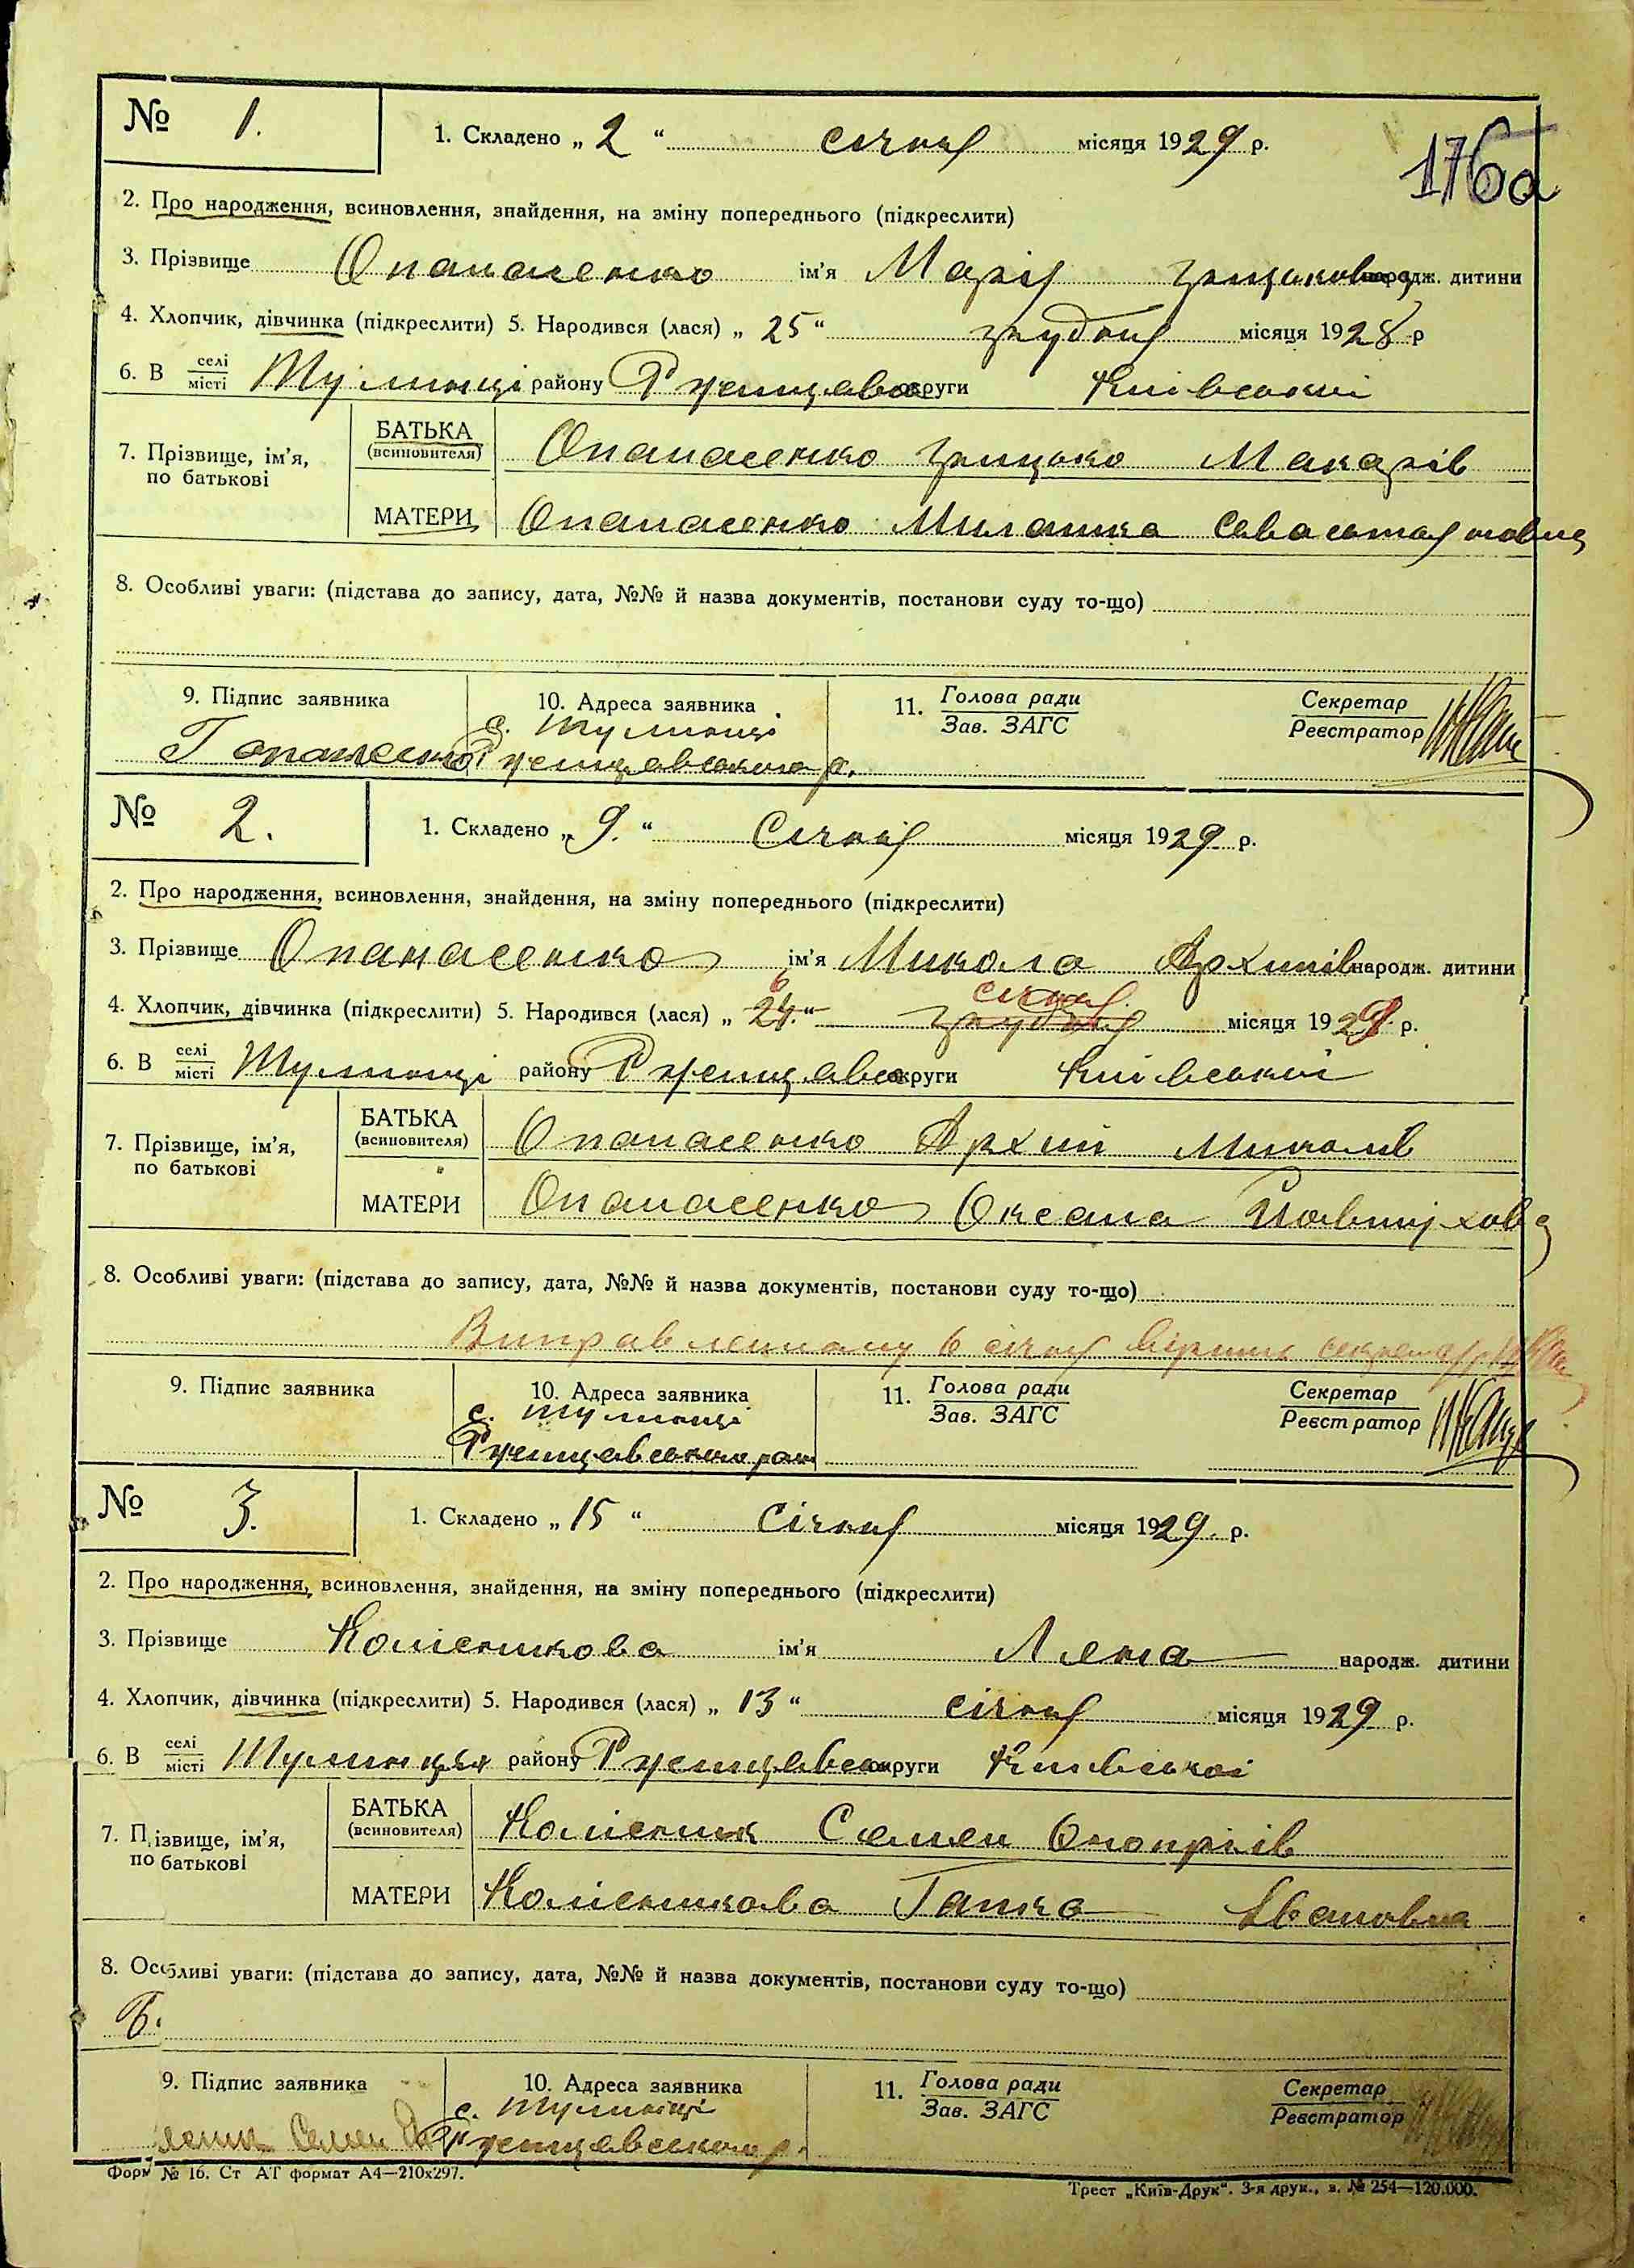 № 1.
1. Складено „ 2 “ січня місяця 1929 р.
176а
2. Про народження, всиновлення, знайдення, на зміну попереднього (підкреслити)
3. Прізвище Опанасенко ім’я Марія Грицьковна народж. дитини
4. Хлопчик, дівчинка (підкреслити) 5. Народився (лася) „ 25 “ грудня місяця 1928 р
6. В селі/місті Тулинці району Ржищевсь округи Київської
7. Прізвище, ім’я, по батькові
БАТЬКА (всиновителя) Опанасенко Грицько Макарів
МАТЕРИ Опанасенко Миланка Севастяновна
8. Особливі уваги: (підстава до запису, дата, №№ й назва документів, постанови суду то-що)
9. Підпис заявника 10. Адреса заявника 11. Голова ради Секретар
с. Тулинці Зав. ЗАГС Реєстратор
Г Опанасенко Ржищевського р.
№ 2.
1. Складено „ 9. “ Січня місяця 1929 р.
2. Про народження, всиновлення, знайдення, на зміну попереднього (підкреслити)
3. Прізвище Опанасенко ім’я Микола Архипів народж. дитини
6 січня
4. Хлопчик, дівчинка (підкреслити) 5. Народився (лася) „ 24. “ грудня місяця 1929 р.
6. В селі/місті Тулинці району Ржищевсь округи Київської
7. Прізвище, ім’я, по батькові
БАТЬКА (всиновителя) Опанасенко Архип Миколів
МАТЕРИ Опанасенко Оксана Явтуховна
8. Особливі уваги: (підстава до запису, дата, №№ й назва документів, постанови суду то-що)
Виправленному 6 січня вірить секретар
9. Підпис заявника 10. Адреса заявника 11. Голова ради Секретар
с. Тулинці Зав. ЗАГС Реєстратор
Ржищевського рай
№ 3.
1. Складено „ 15 “ Січня місяця 1929 р.
2. Про народження, всиновлення, знайдення, на зміну попереднього (підкреслити)
3. Прізвище Колісникова ім’я Лена народж. дитини
4. Хлопчик, дівчинка (підкреслити) 5. Народився (лася) „ 13 “ січня місяця 1929 р.
6. В селі/місті Тулинцях району Ржищевськ округи Київської
7. Прізвище, ім’я, по батькові
БАТЬКА (всиновителя) Колісник Семен Оноприів
МАТЕРИ Колісникова Ганка Івановна
8. Особливі уваги: (підстава до запису, дата, №№ й назва документів, постанови суду то-що)
9. Підпис заявника 10. Адреса заявника 11. Голова ради Секретар
с. Тулинці Зав. ЗАГС Реєстратор
Семен Ржищевського р.
Форм № 16. Ст АТ формат А4—210х297.
Трест „Київ-Друк“. 3-я друк., з. № 254—120.000.